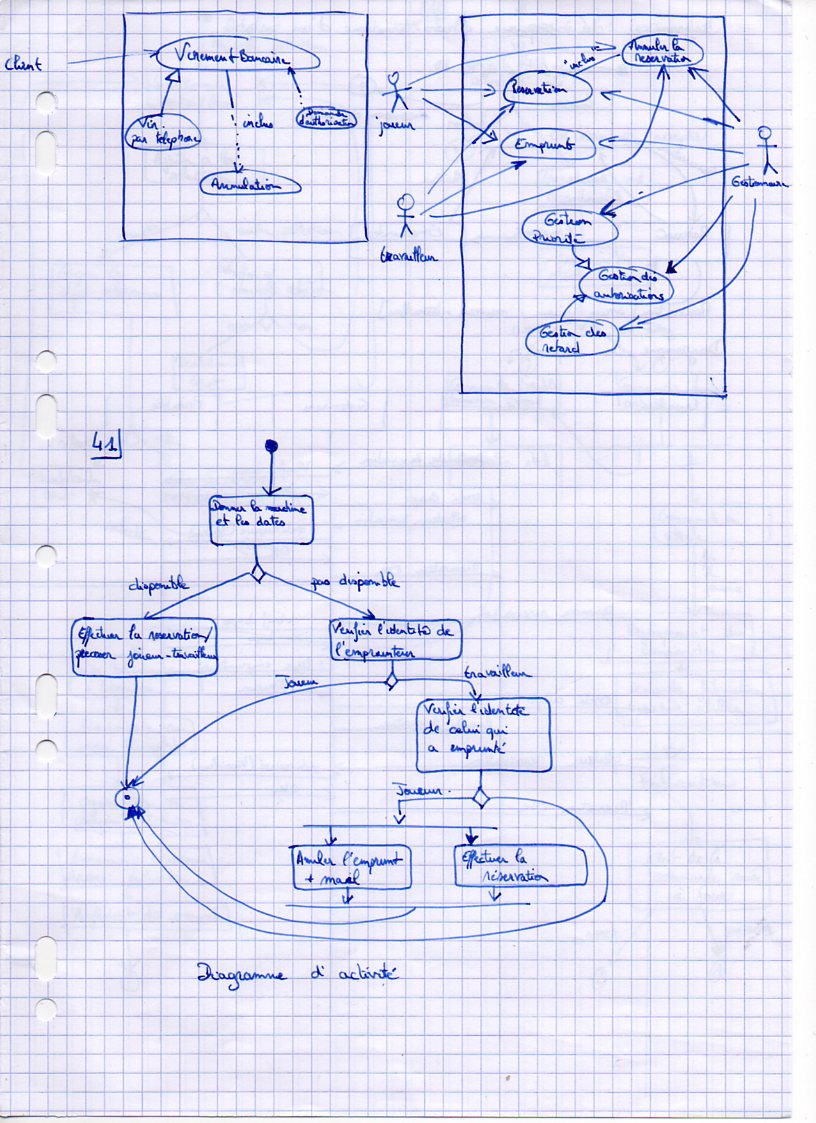 Client
Virement Bancaire
Vir.
par telephone
inclus
Demande
d'authorisation
Annulation
Annuler la
reservation
"inclus"
Reservation
joueur
Emprunt
Gestionnaire
travailleur
Gestion
Priorité
Gestion des
autorisations
Gestion des
retard
41
Donner la machine
et les dates
disponible
pas disponible
Effectuer la reservation/
joueur-travailleur
Verifier l'identité de
l'emprunteur
Joueur
travailleur
Verifier l'identité
de celui qui
a emprunté
Joueur.
Annuler l'emprunt
+ mail
Effectuer la
réservation
Diagramme d'activité